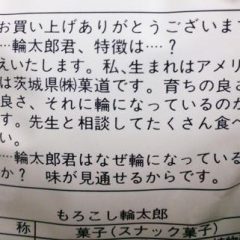 お買い上げありがとうございます
…輪太郎君、特徴は…?
えいたします。私、生まれはアメリ
は茨城県㈱菓道です。育ちの良さ
良さ、それに輪になっているのが
す。先生と相談してたくさん食べ
い。
…輪太郎君はなぜ輪になっている
か? 味が見通せるからです。
もろこし輪太郎
称 菓子(スナック菓子)